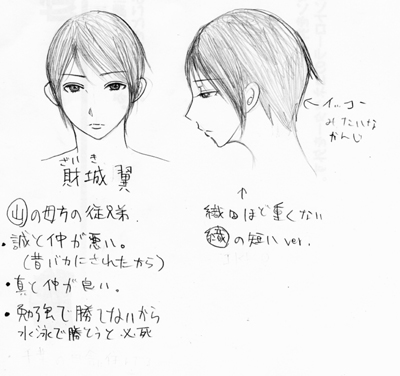 ←イッコー
みたいな
かんじ
ざいき
財城 翼
㊤の母方の従兄弟.
・誠と仲が悪い。
(昔バカにされたから)
・真と仲が良い。
・勉強で勝てないから
水泳で勝とうと必死
↑
織田ほど重くない
織の短いver.